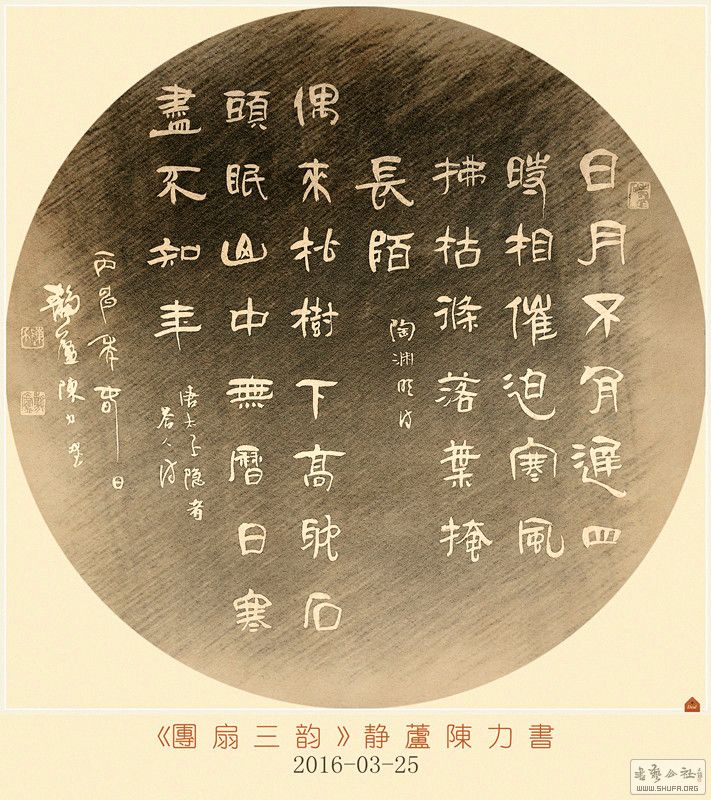 日月不肎遲四
時相催迫寒風
拂枯條落葉掩
長陌
陶淵明詩
偶來松樹下高枕石
頭眠山中無曆日寒
盡不知年
唐太上隐者
答人詩
丙申年春日
靜廬陳力書
《團扇三韵》静蘆陳力書
2016-03-25
書藝公社
WWW.SHUFA.ORG